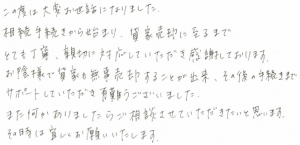 この度は大変お世話になりました。
相続手続きから始まり、留家売却に至るまで
とても丁寧、親切に対応していただき感謝しております。
お陰様で留家も無事売却することが出来、その後の手続きまで
サポートしていただき有難うございました。
また何かありましたらご相談させていただきたいと思います。
その時は宜しくお願いいたします。